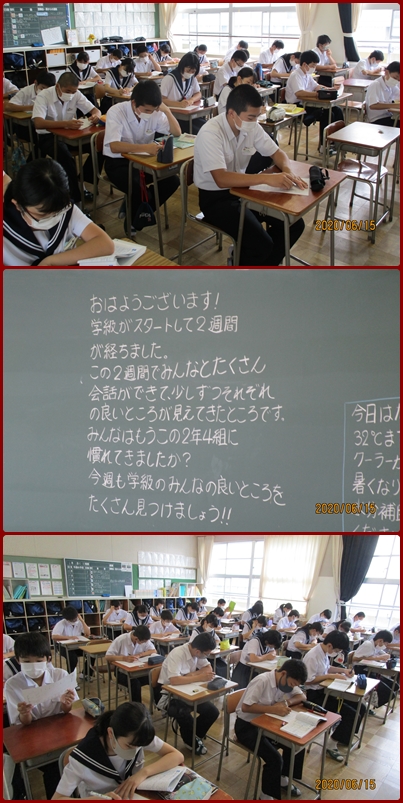 2020/06/15
おはようございます!
学級がスタートして2週間
が経ちました。
この2週間でみんなとたくさん
会話ができて、少しずつそれぞれ
の良いところが見えてきたところです。
みんなはもうこの2年4組に
慣れてきましたか?
今週も学級のみんなの良いところを
たくさん見つけましょう!!
今日は
32℃ま
クーラーが
暑くなり
分補
2020/06/15
2020/06/15